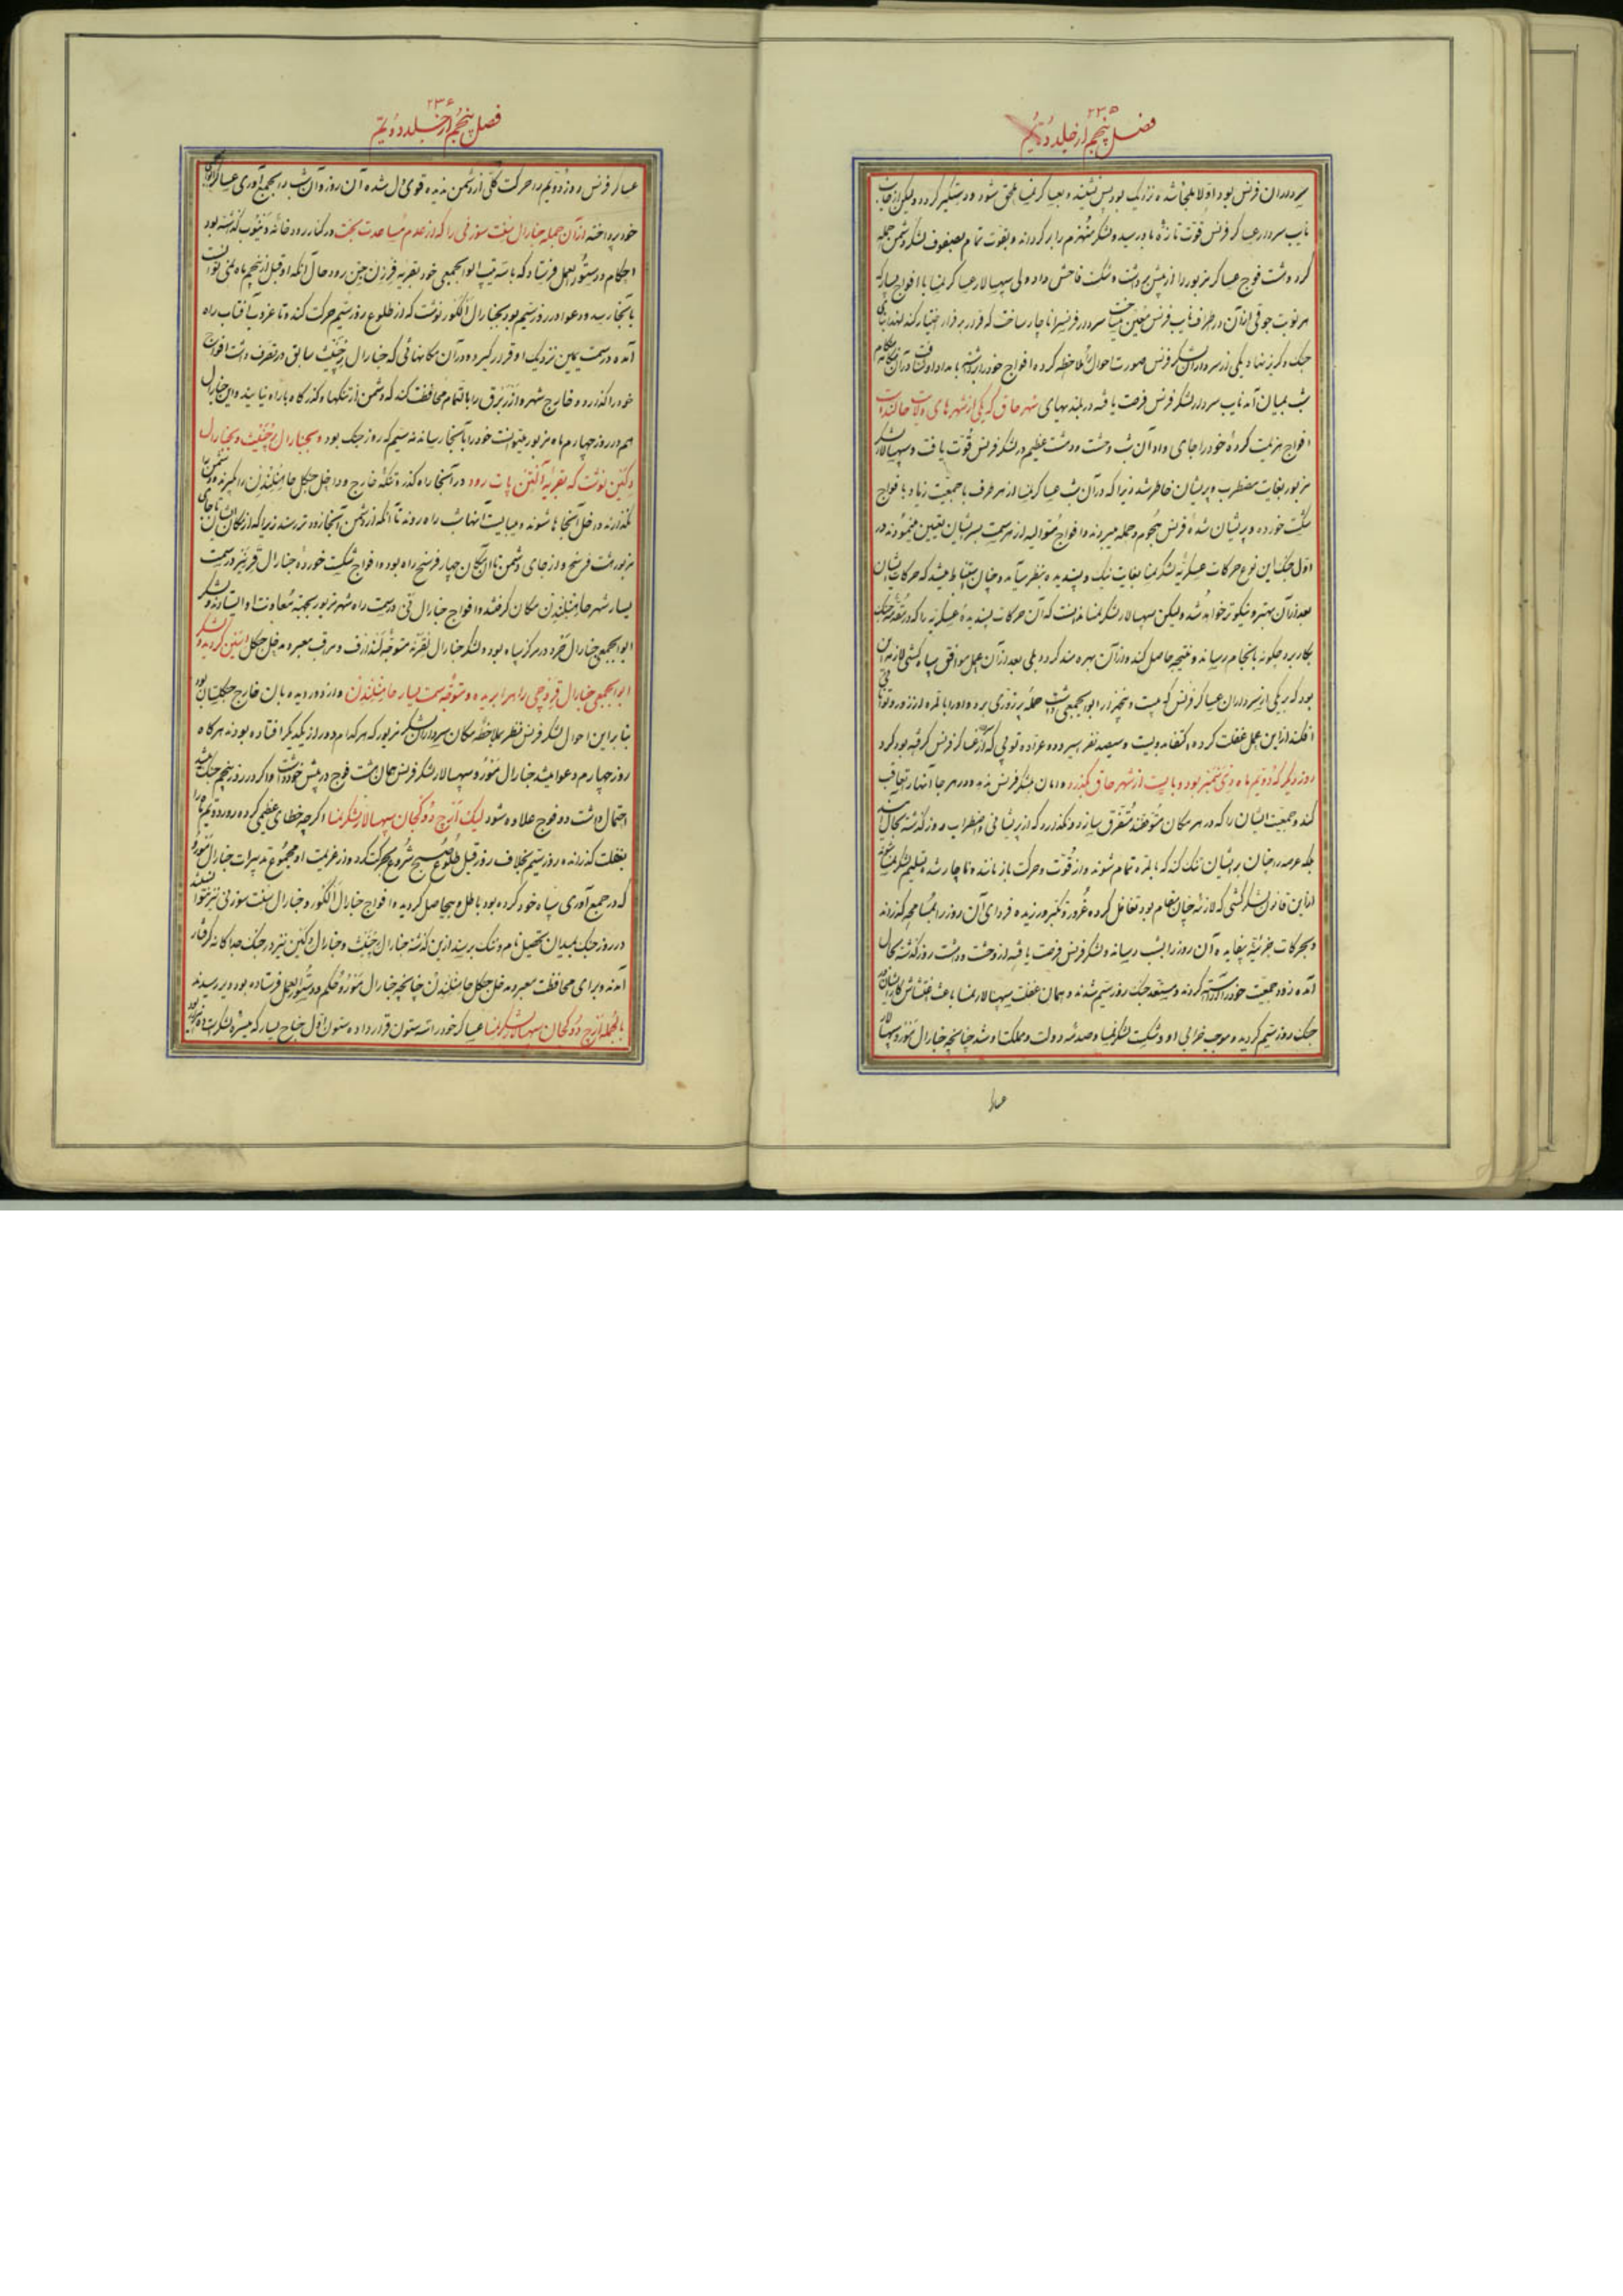 ۲۳۵
فصل پنجم از جلد دویم
سرداران فرنس بود اولا ملجا شده نزدیک بود پس نشیند و بعساکر نمسا ملحق شود و دستگیر کردد ولیکن از جانب
نایب سردار عساکر فرنس قوت تازه باو رسید و لشکر منهزم را برگرداند و بقوت تمام بصفوف لشکر دشمن حمله
کرد و هشت فوج عساکر مزبور را از پیش برداشت و شکست فاحش داد ولی سپهسالار عساکر نمسا با افواج بسیار که
هر نوبت جوقی از آن در طراف نایب فرنس معین میساخت سردار فرنس را ناچار ساخت که قرار بر فرار اختیار کند
جنک و کریز نهاد یکی از سرداران لشکر فرنس صورت احوال را ملاحظه کرده افواج خود را برداشته بامداد او شتافت در آن هنکام
شب بمیان آمد نایب سردار لشکر فرنس فرصت یافته در بلندیهای شهر حاق که یکی از شهرهای ولایت حالند است
افواج هزیمت کرده خود را جای داد آن شب وحشت و دهشت عظیم در لشکر فرنس قوت یافت و سپهسالار لشکر
مزبور بغایت مضطرب و پریشان خاطر شد زیرا که در آن شب عساکر نمسا از هر طرف با جمعیت زیاد با فواج
شکست خورده و پریشان شده فرنس هجوم و حمله میبردند و افواج متوالیه از هر سمت بسر ایشان تعیین مینمودند در
اول جنک این نوع حرکات عسکریه لشکر نمسا بغایت نیک و پسندیده بنظر میآمد و چنان استنباط میشد که حرکات ایشان
بعد از آن بهتر و نیکوتر خواهد شد ولیکن سپهسالار لشکر نمسا ندانست که آن حرکات پسندیدهٔ عسکریه را که در مقدمه جنک
بکار برد چکونه بانجام رساند و نتیجه حاصل کند و از آن بهره مند کردد بلی بعد از آن عمل موافق سپاه کشی لازمه آن
بود که بر یکی از سرداران عساکر فرنس که بیست و پنجهزار ابوابجمعی داشت حمله پر زوری برد و او را بالمره از زور و توانائی
افکند از این عمل غفلت کرده اکتفا بدویست و سیصد نفر اسیر و دو عراده توپی که از عساکر فرنس کرفته بود کرد
روز دیکر که دویم ماه دی شمبر بود و بایست از شهر حاق بگذرد و امان بلشکر فرنس ندهد و در هر جا آنها را تعاقب
کند و جمعیت ایشان را که در هر مکان متوقفند متفرق سازد و نکذارد که از پریشانی و اضطراب روز کذشته بحال آیند
بلکه عرصه را چنان بر ایشان تنک کند که بالمره تمام شوند و از قوت و حرکت باز مانند و ناچار شده تسلیم لشکر نمسا شوند
از این قانون لشکرکشی که لازمه چنان مقام بود تغافل کرده غرور و تکبر ورزیده فردای آن روز را بمسامحه کذراند
و بحرکات جزئیه بیفایده آن روز را بشب رسانید و لشکر فرنس فرصت یافته از وحشت و دهشت روز کذشته بحال
آمده زود جمعیت خود را آراسته کردند و مستعد جنک روز سیم شدند و همان غفلت سپهسالار نمسا باعث اغتشاش کار ایشان در
جنک روز سیم کردید و موجب خرابی او و شکست لشکر نمسا و صدمه دولت و مملکت او شد چنانچه جنارال مورو سپهسالار
عساکر
۲۳۶
فصل پنجم از جلد دویم
عساکر فرنس روز دویم را حرکت کلی از دشمن ندیده قوی دل شده آن روز و آن شب را بجمع آوری عساکر
خود پرداخته از آن جمله جنارال سنت سوزنی را که از عدم مساعدت بخت در کنار رودخانه دنیوب کذشته بود
احکام و دستورالعمل فرستاد که با سه تیپ ابوابجمعی خود بقریه فرزن جین رود حال آنکه او قبل از پنجم ماه نمی توانست
بآنجا رسد و دعوا در روز سیم بود بجنارال الکور نوشت که از طلوع روز سیم حرکت کند و تا غروب آفتاب راه
آمده در سمت یمین نزدیک او قرار کیرد و در آن مکانهائی که جنارال رچنث سابق در تصرف داشت افواج
خود را کذارد و خارج شهر و ازربرق را بالتمام محافظت کند که دشمن از تنکها و کذرکاه باراه نیابند و این جنارال
هم در روز چهارم ماه مزبور میتوانست خود را بآنجا رساند نه سیم که روز جنک بود و بجنارال رچنث و بجنارال
دکین نوشت که بقریه آنتن پات رود و در آنجا راه کذر و تنکه خارج و داخل جنکل هاهنلیندن را بگیرند و دشمن را
نکذارند داخل آنجاها شوند و میبایست آنها شب راه روند تا آنکه از دشمن بآنجا زودتر رسند زیرا که از مکان ایشان تا جای
مزبور هشت فرسخ و از جای دشمن تا آن مکان چهار فرسخ راه بود و افواج شکست خوردهٔ جنارال قرنیر در سمت
یسار شهر هاهنلیندن مکان کرفتند و افواج جنارال نی در سمت راه شهر مزبور بجهته معاونت او ایستادند و لشکر
ابوابجمعی جنارال هرد در مرکز سپاه بود و لشکر جنارال نفرته متوقف کنذرف و مراقب معبر و مدخل جنکل استین کردیدند و لشکر
ابوابجمعی جنارال قروچی را همراه برده و متوقف سمت یسار هاهنلیندن و از دور دیده بان خارج جنکلستان بود
بنابراین احوال لشکر فرنس نظر بملاحظه مکان سرداران لشکر مزبور که هر کدام دور از یکدیکر افتاده بودند هر کاه
روز چهارم دعوا میشد جنارال مورو سپهسالار لشکر فرنس همان هشت فوج در پیش خود داشت و اکر در روز پنجم جنک میشد
احتمال داشت دو فوج علاوه شود لیکن آرج دوک جان سپهسالار لشکر نمسا اکرچه خطای عظیمی کرده روز دویم ماه را
بغفلت کذراند و روز سیم بخلاف روز قبل طلوع صبح شروع بحرکت کرد و از عزیمت او مجموع تدبیرات جنارال مورو
که در جمع آوری سپاه خود کرده بود باطل و بیحاصل کردید و افواج جنارال الکور و جنارال سنت سوزنی نیز نتوانستند
در روز جنک بمیدان تحصیل نام و ننک برسند از این کذشته جنارال رچنث و جنارال دکین نیز در جنک جداکانه کرفتار
آمدند و برای محافظت معبر و مدخل جنکل هاهنلیندن چنانچه جنارال مورو حکم و دستورالعمل فرستاده بود دیر رسیدند
بالجمله آرج دوک جان سپهسالار لشکر نمسا عساکر خود را سه ستون قرار داده ستون اول جناح یسار که میسره لشکر است